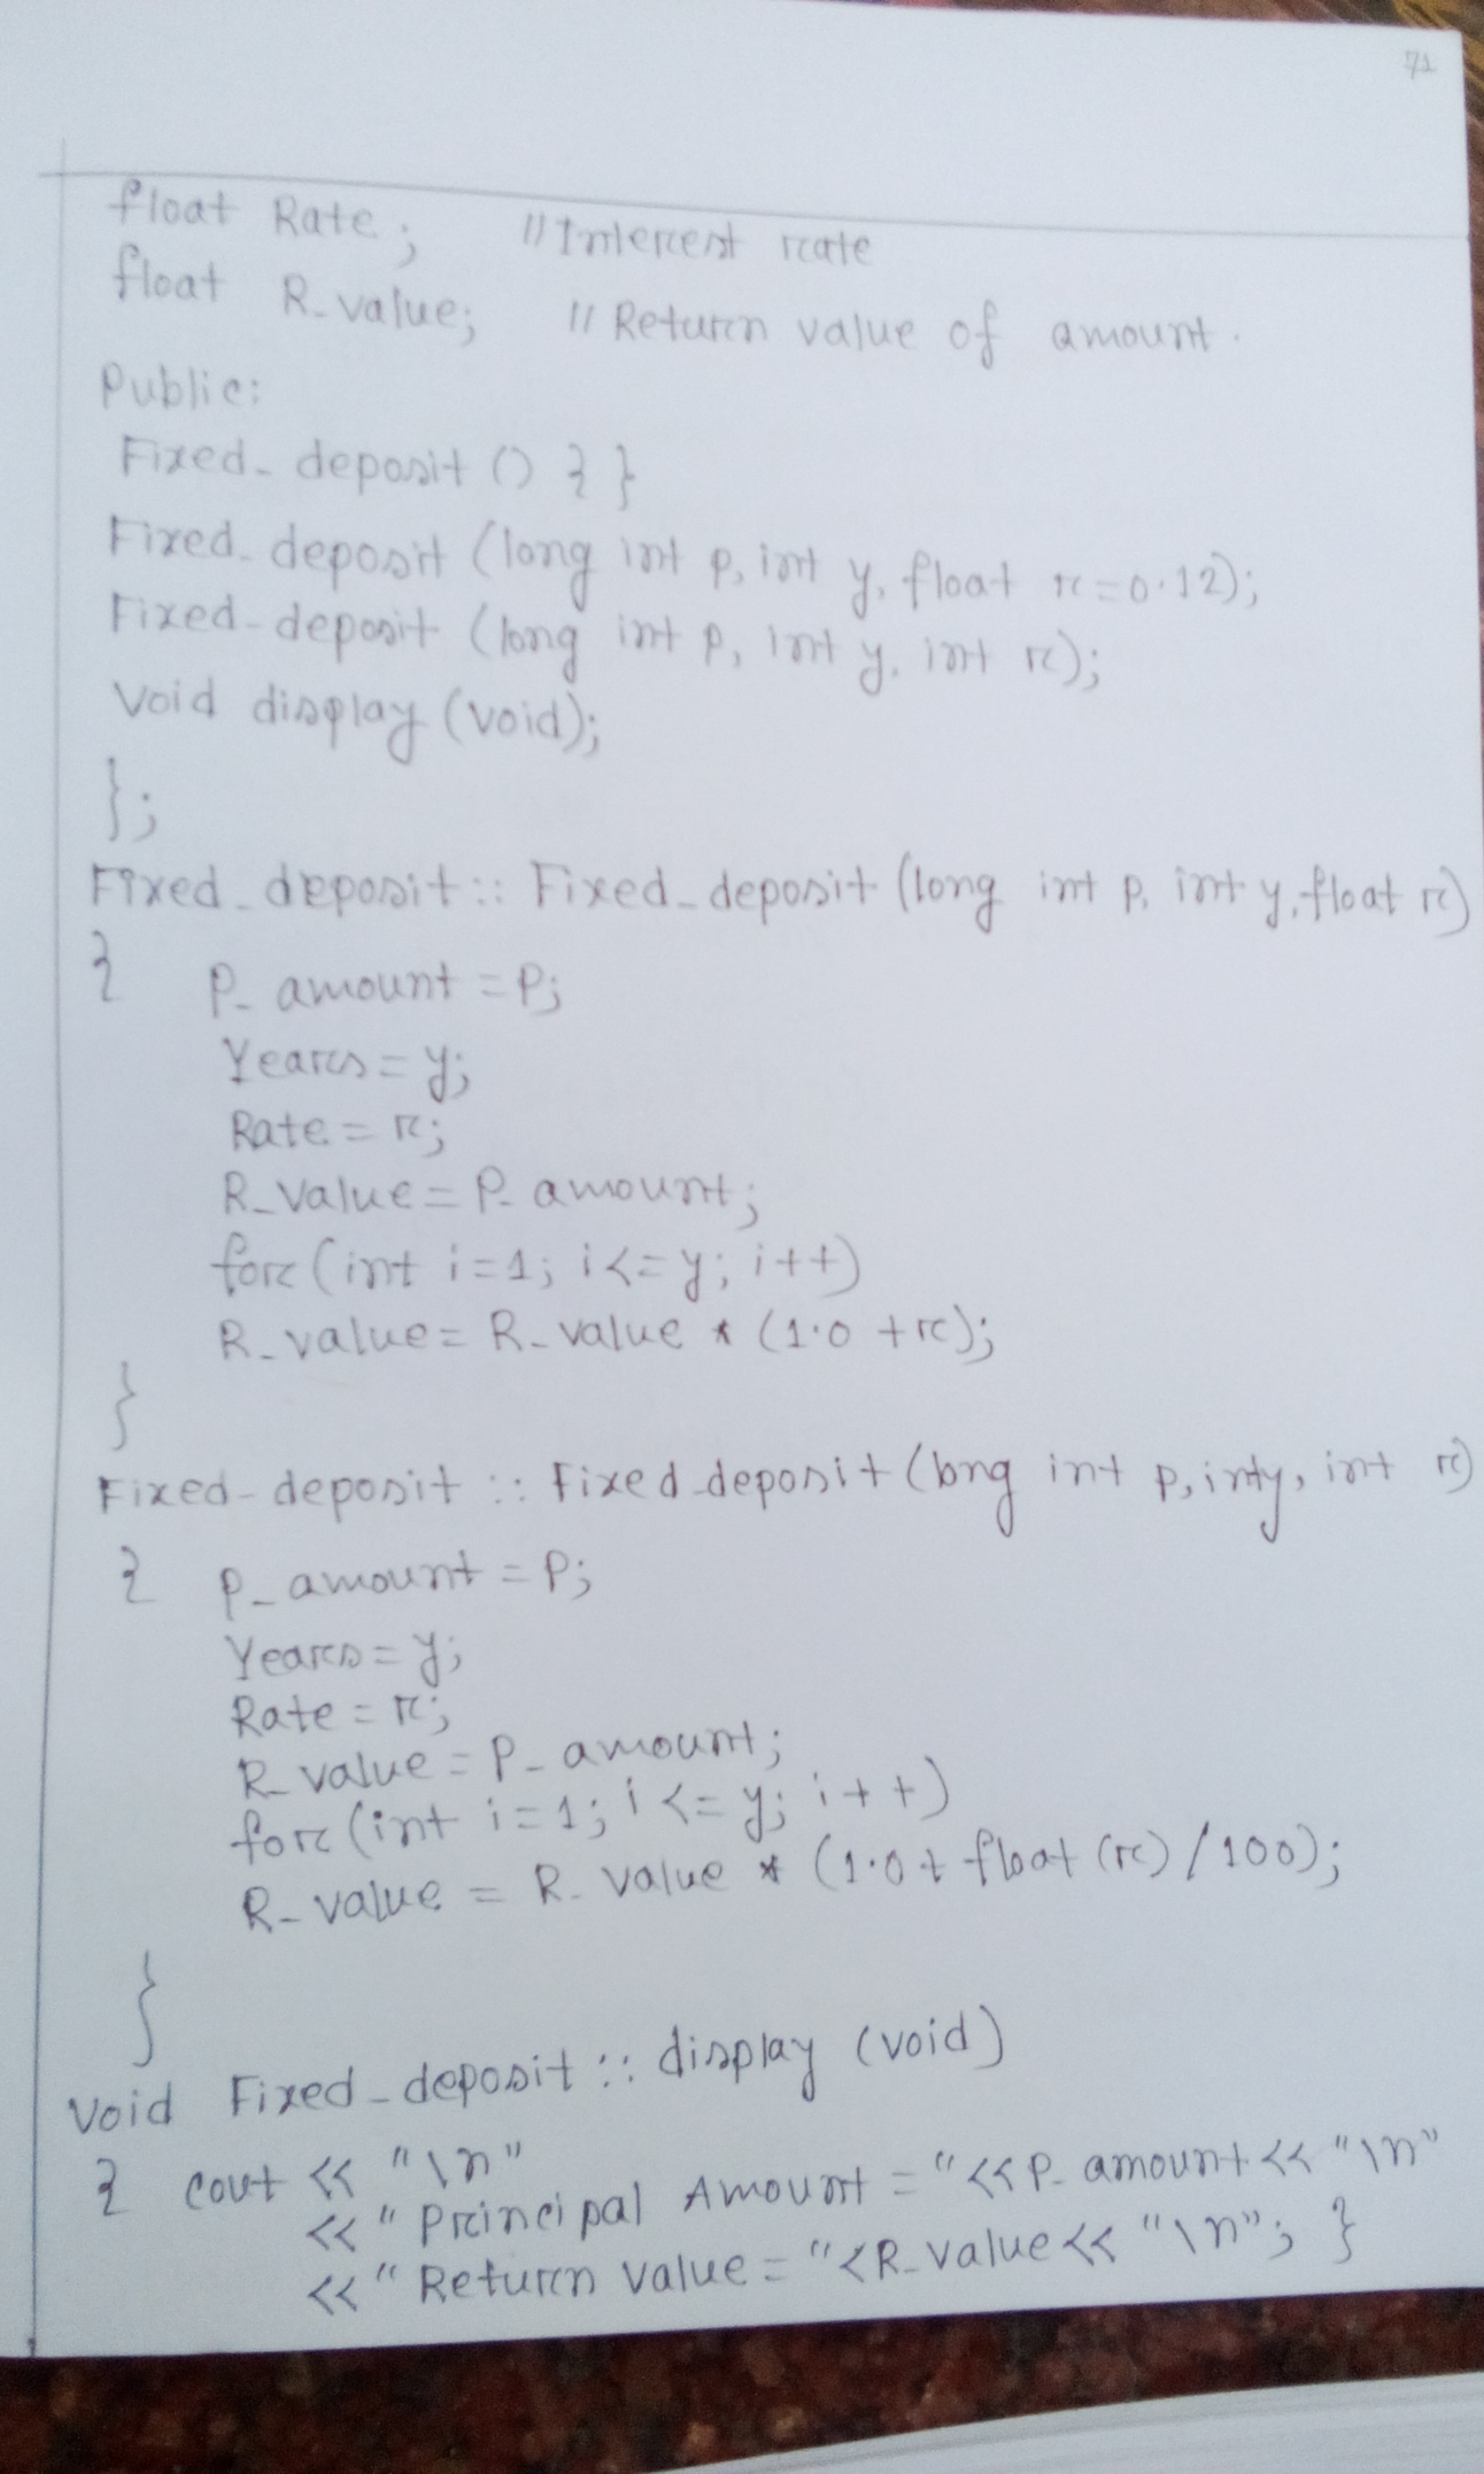 71
float Rate; //Interest rate
float R_value; //Return value of amount.
Public:
Fixed_deposit () { }
Fixed_deposit (long int p, int y, float r=0.12);
Fixed_deposit (long int p, int y, int r);
Void display (void);
};
Fixed_deposit :: Fixed_deposit (long int p, int y, float r)
{ P_amount = P;
Years = y;
Rate = r;
R_value = P_amount;
for (int i=1; i<=y; i++)
R_value = R_value * (1.0 + r);
}
Fixed_deposit :: Fixed_deposit (long int p, int y, int r)
{ P_amount = P;
Years = y;
Rate = r;
R_value = P_amount;
for (int i=1; i<=y; i++)
R_value = R_value * (1.0 + float (r) / 100);
}
Void Fixed_deposit :: display (void)
{ cout << "\n"
<< "Principal Amount = "<<P_amount<< "\n"
<< "Return Value = "<R_value<< "\n"; }